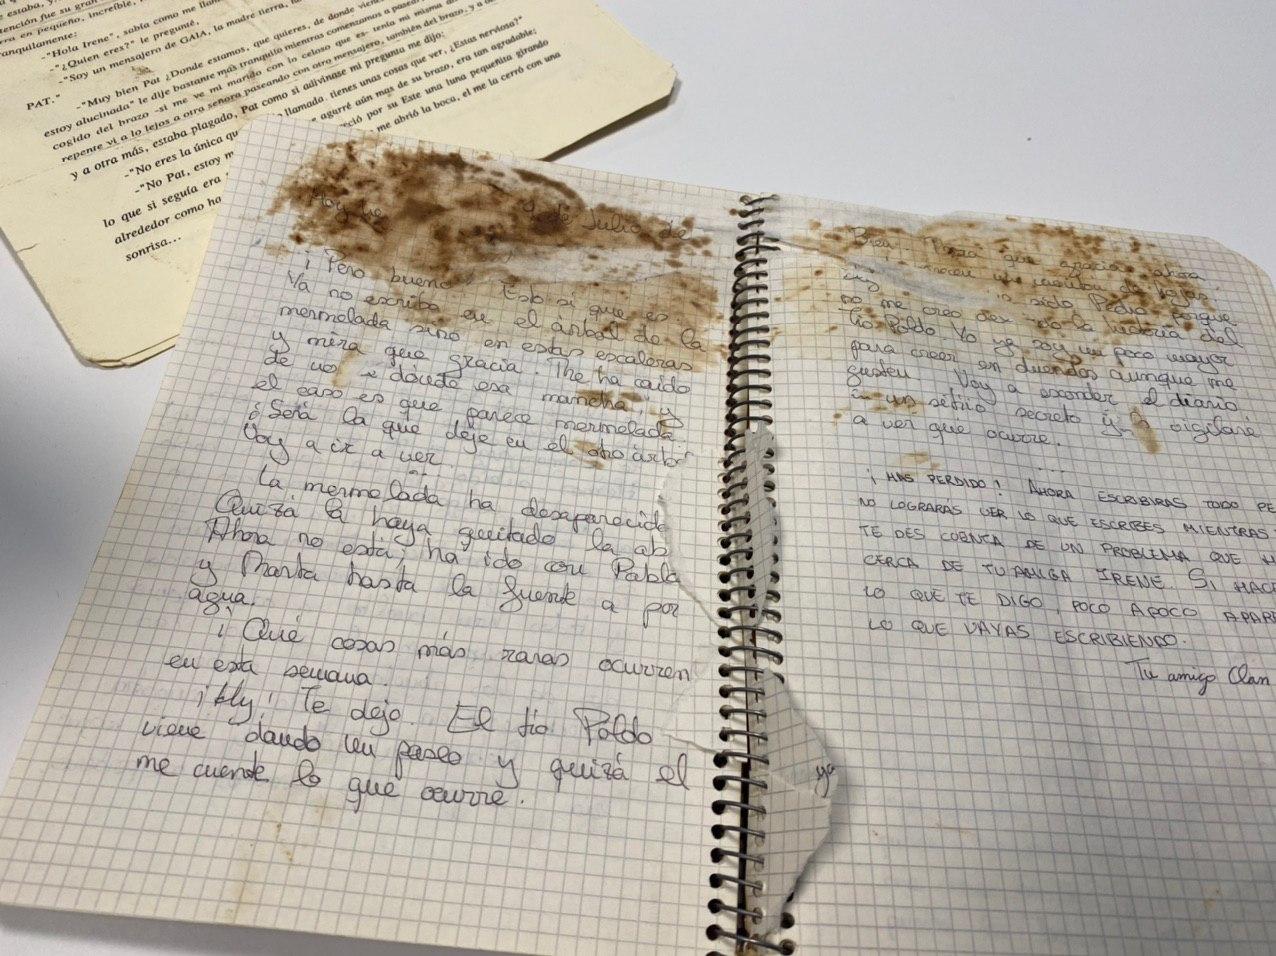 estaba, y
tención fue su gran
rra en pequeño, increíble,
ranquilamente:
-"Hola Irene", sabía como me llam
-"¿Quien eres?" le pregunté,
-"Soy un mensajero de GAIA, la madre tierra,
PAT."
-"Muy bien Pat ¿Donde estamos, que quieres, de donde vien
estoy alucinada" le dije bastante más tranquilo mientras comenzamos a pasear,
cogido del brazo -si me ve mi marido con lo celoso que es- tenía mi misma
repente vi a lo lejos a otra señora paseando con otro mensajero, también del brazo, y a
y a otra más, estaba plagado, Pat como si adivinase mi pregunta me dijo:
-"No eres la única qu llamado tienes unas cosas que ver, ¿Estas nerviosa?"
-"No Pat, estoy m agarré aún mas de su brazo, era tan agradable;
lo que si seguía era reció por su Este una luna pequeñita girando
alrededor como ha me abrió la boca, el me la cerró con una
sonrisa...
Hoy de Julio de
¡Pero bueno! Esto si que es
Ya no escribo en el árbol de la
mermelada sino en estas escaleras
y mira que gracia. Me ha caido
de no se dónde esa mancha, y
el caso es que parece mermelada.
¿Será la que deje en el otro árbol
Voy a ir a ver.
La mermelada ha desaparecido
Quizá la haya quitado la ab
Ahora no está, ha ido con Pabla
y Marta hasta la fuente a por
agua.
¡Qué cosas más raras ocurren
en esta semana.
¡Huy! Te dejo. El tío Poldo
viene dando un paseo y quizá el
me cuente lo que ocurre.
ya
Bien. Mira que gracia, ahora
hojas
sido Pedro porque
no me creo la historia del
Tío Poldo. Yo ya soy un poco mayor
para creer en duendes aunque me
gusten. Voy a esconder el diario
en un sitio secreto y vigilaré
a ver que ocurre.
....
¡HAS PERDIDO! AHORA ESCRIBIRAS TODO PE
NO LOGRARÁS VER LO QUE ESCRIBES MIENTRAS
TE DES CUENTA DE UN PROBLEMA QUE H
CERCA DE TU AMIGA IRENE. SI HACE
LO QUE TE DIGO, POCO A POCO APARE
LO QUE VAYAS ESCRIBIENDO.
Tu amigo Clan